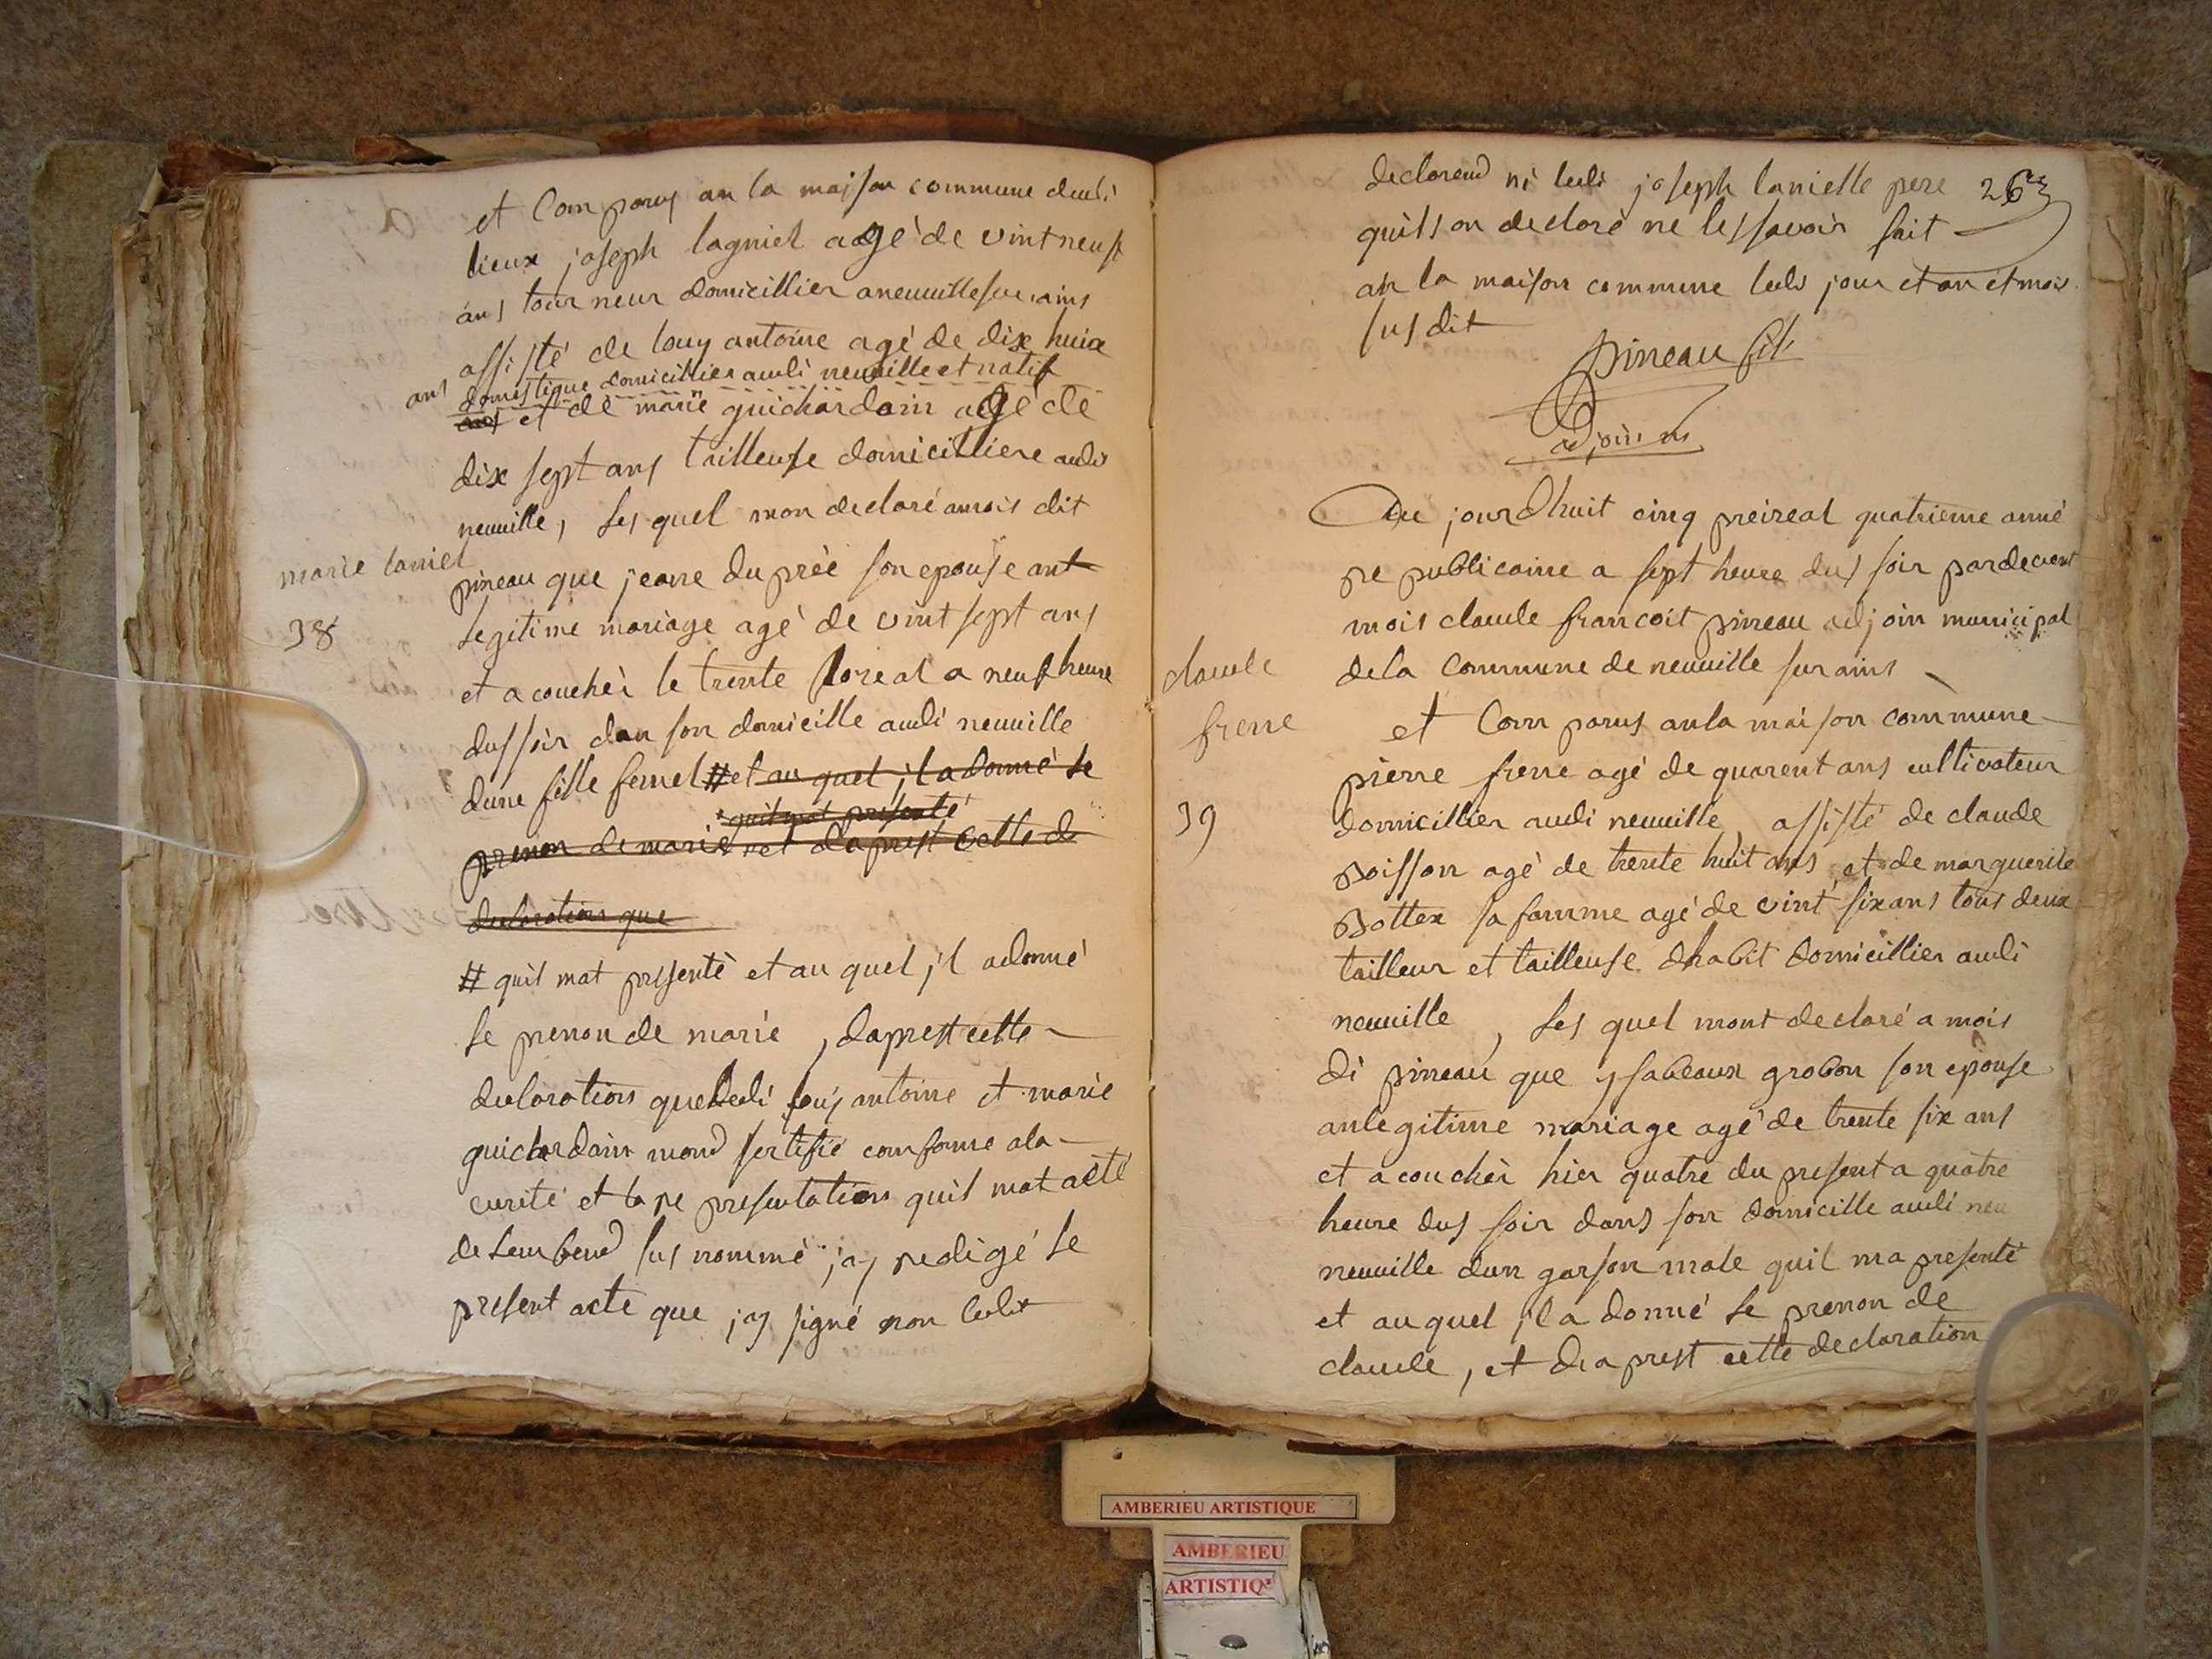 et Comparus an la maison commune dudi
lieux joseph lagniel aagé de vintneuf
ans tourneur domicillier aneuville sur ains
assisté de louy antoine agé de dix huix
ans domestique domicillier audi neuville et natif
et de marie guichardain agé de
dix sept ans tailleuse domicilliere audi
neuville, les quel mon declaré amois dit
marie laniel
38
pineau que jeane du prée son epouse ant
legitime mariage agé de vint sept ans
et a couchèi le trente floreal a neuf heure
dus soir dan son domicille audi neuville
dune fille femel # et au quel il a donné le
quil mat presenté
prenon de marie et daprest cette de
declaration que
# quil mat presenté et au quel jl adonné
le prenon de marie, daprest cette
declaration que ledi louis antoine et marie
guichardain mond sertifié conforme ala
verité et la re presentation quil mat aété
de lenfend sus nommé jay redigé le
present acte que jay signé non ledit
declarend ni ledi joseph lanielle pere
263
quils on declaré ne les savoir fait
an la maison commune leds jour et an et mois
sus dit
pineau fils
adjoin m
Au jourdhuit cinq preireal quatrieme anné
re publicaine a sept heure dus soir pardevent
mois claude francoit pineau adjoin municipal
de la commune de neuville sur ains
claude
frerre
39
et Comparus an la maison commune
pierre frerre agé de quarent ans cultivateur
domicillier audi neuville, assisté de claude
poisson agé de trente huit ans, et de marguerite
pottex sa famme agé de vint six ans tous deux
tailleur et tailleuse dhabit domicillier audi
neuville, les quel mont declaré a mois
di pineau que ysabeaux grobon son epouse
anlegitime mariage agé de trente six ans
et a couchèi hier quatre du present a quatre
heure dus soir dans son domicille audi neu
neuville dun garson male quil ma presenté
et auquel jl a donné le prenon de
claude, et dea prest cette declaration
AMBERIEU ARTISTIQUE
AMBERIEU
ARTISTIQ